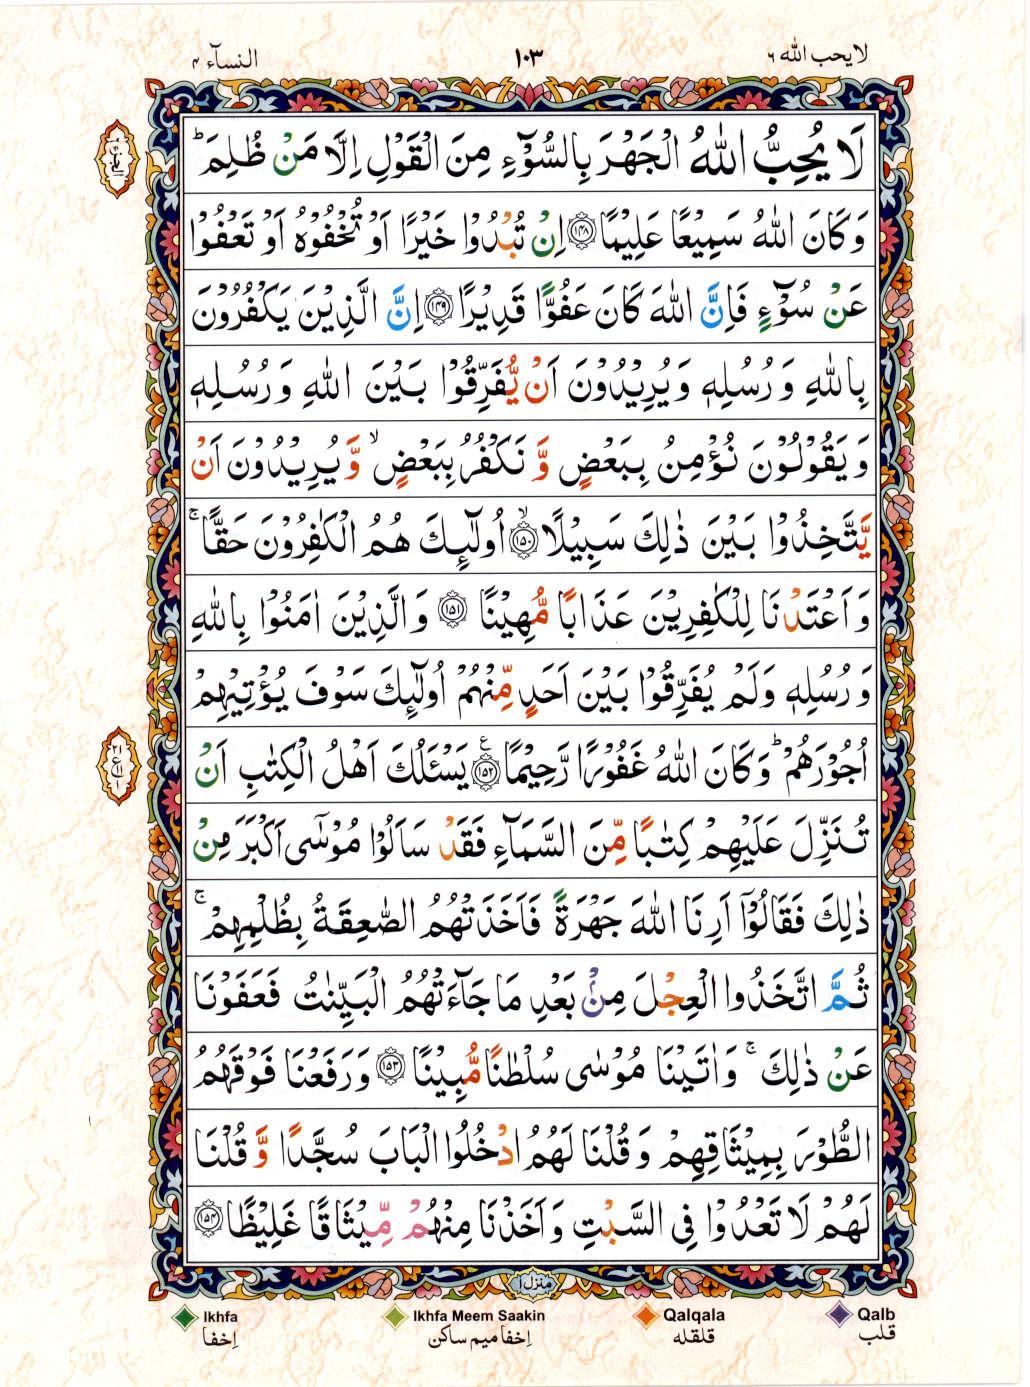 لا يحب الله ٦
١٠٣
النسآء ٤
لَا يُحِبُّ اللّٰهُ الْجَهْرَ بِالسُّوْٓءِ مِنَ الْقَوْلِ اِلَّا مَنْ ظُلِمَ ؕ
وَكَانَ اللّٰهُ سَمِيْعًا عَلِيْمًا ﴿۱۴۸﴾ اِنْ تُبْدُوْا خَيْرًا اَوْ تُخْفُوْهُ اَوْ تَعْفُوْا
عَنْ سُوْٓءٍ فَاِنَّ اللّٰهَ كَانَ عَفُوًّا قَدِيْرًا ﴿۱۴۹﴾ اِنَّ الَّذِيْنَ يَكْفُرُوْنَ
بِاللّٰهِ وَ رُسُلِهٖ وَ يُرِيْدُوْنَ اَنْ يُّفَرِّقُوْا بَيْنَ اللّٰهِ وَ رُسُلِهٖ
وَ يَقُوْلُوْنَ نُؤْمِنُ بِبَعْضٍ وَّ نَكْفُرُ بِبَعْضٍ ۙ وَّ يُرِيْدُوْنَ اَنْ
يَّتَّخِذُوْا بَيْنَ ذٰلِكَ سَبِيْلًا ۙ﴿۱۵۰﴾ اُولٰٓئِكَ هُمُ الْكٰفِرُوْنَ حَقًّا ۚ
وَ اَعْتَدْنَا لِلْكٰفِرِيْنَ عَذَابًا مُّهِيْنًا ﴿۱۵۱﴾ وَ الَّذِيْنَ اٰمَنُوْا بِاللّٰهِ
وَ رُسُلِهٖ وَلَمْ يُفَرِّقُوْا بَيْنَ اَحَدٍ مِّنْهُمْ اُولٰٓئِكَ سَوْفَ يُؤْتِيْهِمْ
اُجُوْرَهُمْ ؕ وَكَانَ اللّٰهُ غَفُوْرًا رَّحِيْمًا ﴿۱۵۲﴾ ع يَسْـَٔلُكَ اَهْلُ الْكِتٰبِ اَنْ
تُنَزِّلَ عَلَيْهِمْ كِتٰبًا مِّنَ السَّمَآءِ فَقَدْ سَاَلُوْا مُوْسٰٓى اَكْبَرَ مِنْ
ذٰلِكَ فَقَالُوْٓا اَرِنَا اللّٰهَ جَهْرَةً فَاَخَذَتْهُمُ الصّٰعِقَةُ بِظُلْمِهِمْ ۚ
ثُمَّ اتَّخَذُوا الْعِجْلَ مِنْۢ بَعْدِ مَا جَآءَتْهُمُ الْبَيِّنٰتُ فَعَفَوْنَا
عَنْ ذٰلِكَ ۚ وَ اٰتَيْنَا مُوْسٰى سُلْطٰنًا مُّبِيْنًا ﴿۱۵۳﴾ وَ رَفَعْنَا فَوْقَهُمُ
الطُّوْرَ بِمِيْثَاقِهِمْ وَ قُلْنَا لَهُمُ ادْخُلُوا الْبَابَ سُجَّدًا وَّ قُلْنَا
لَهُمْ لَا تَعْدُوْا فِى السَّبْتِ وَ اَخَذْنَا مِنْهُمْ مِّيْثَاقًا غَلِيْظًا ﴿۱۵۴﴾
منزل ١
Ikhfa
اِخفا
Ikhfa Meem Saakin
اِخفا میم ساکن
Qalqala
قلقله
Qalb
قلب